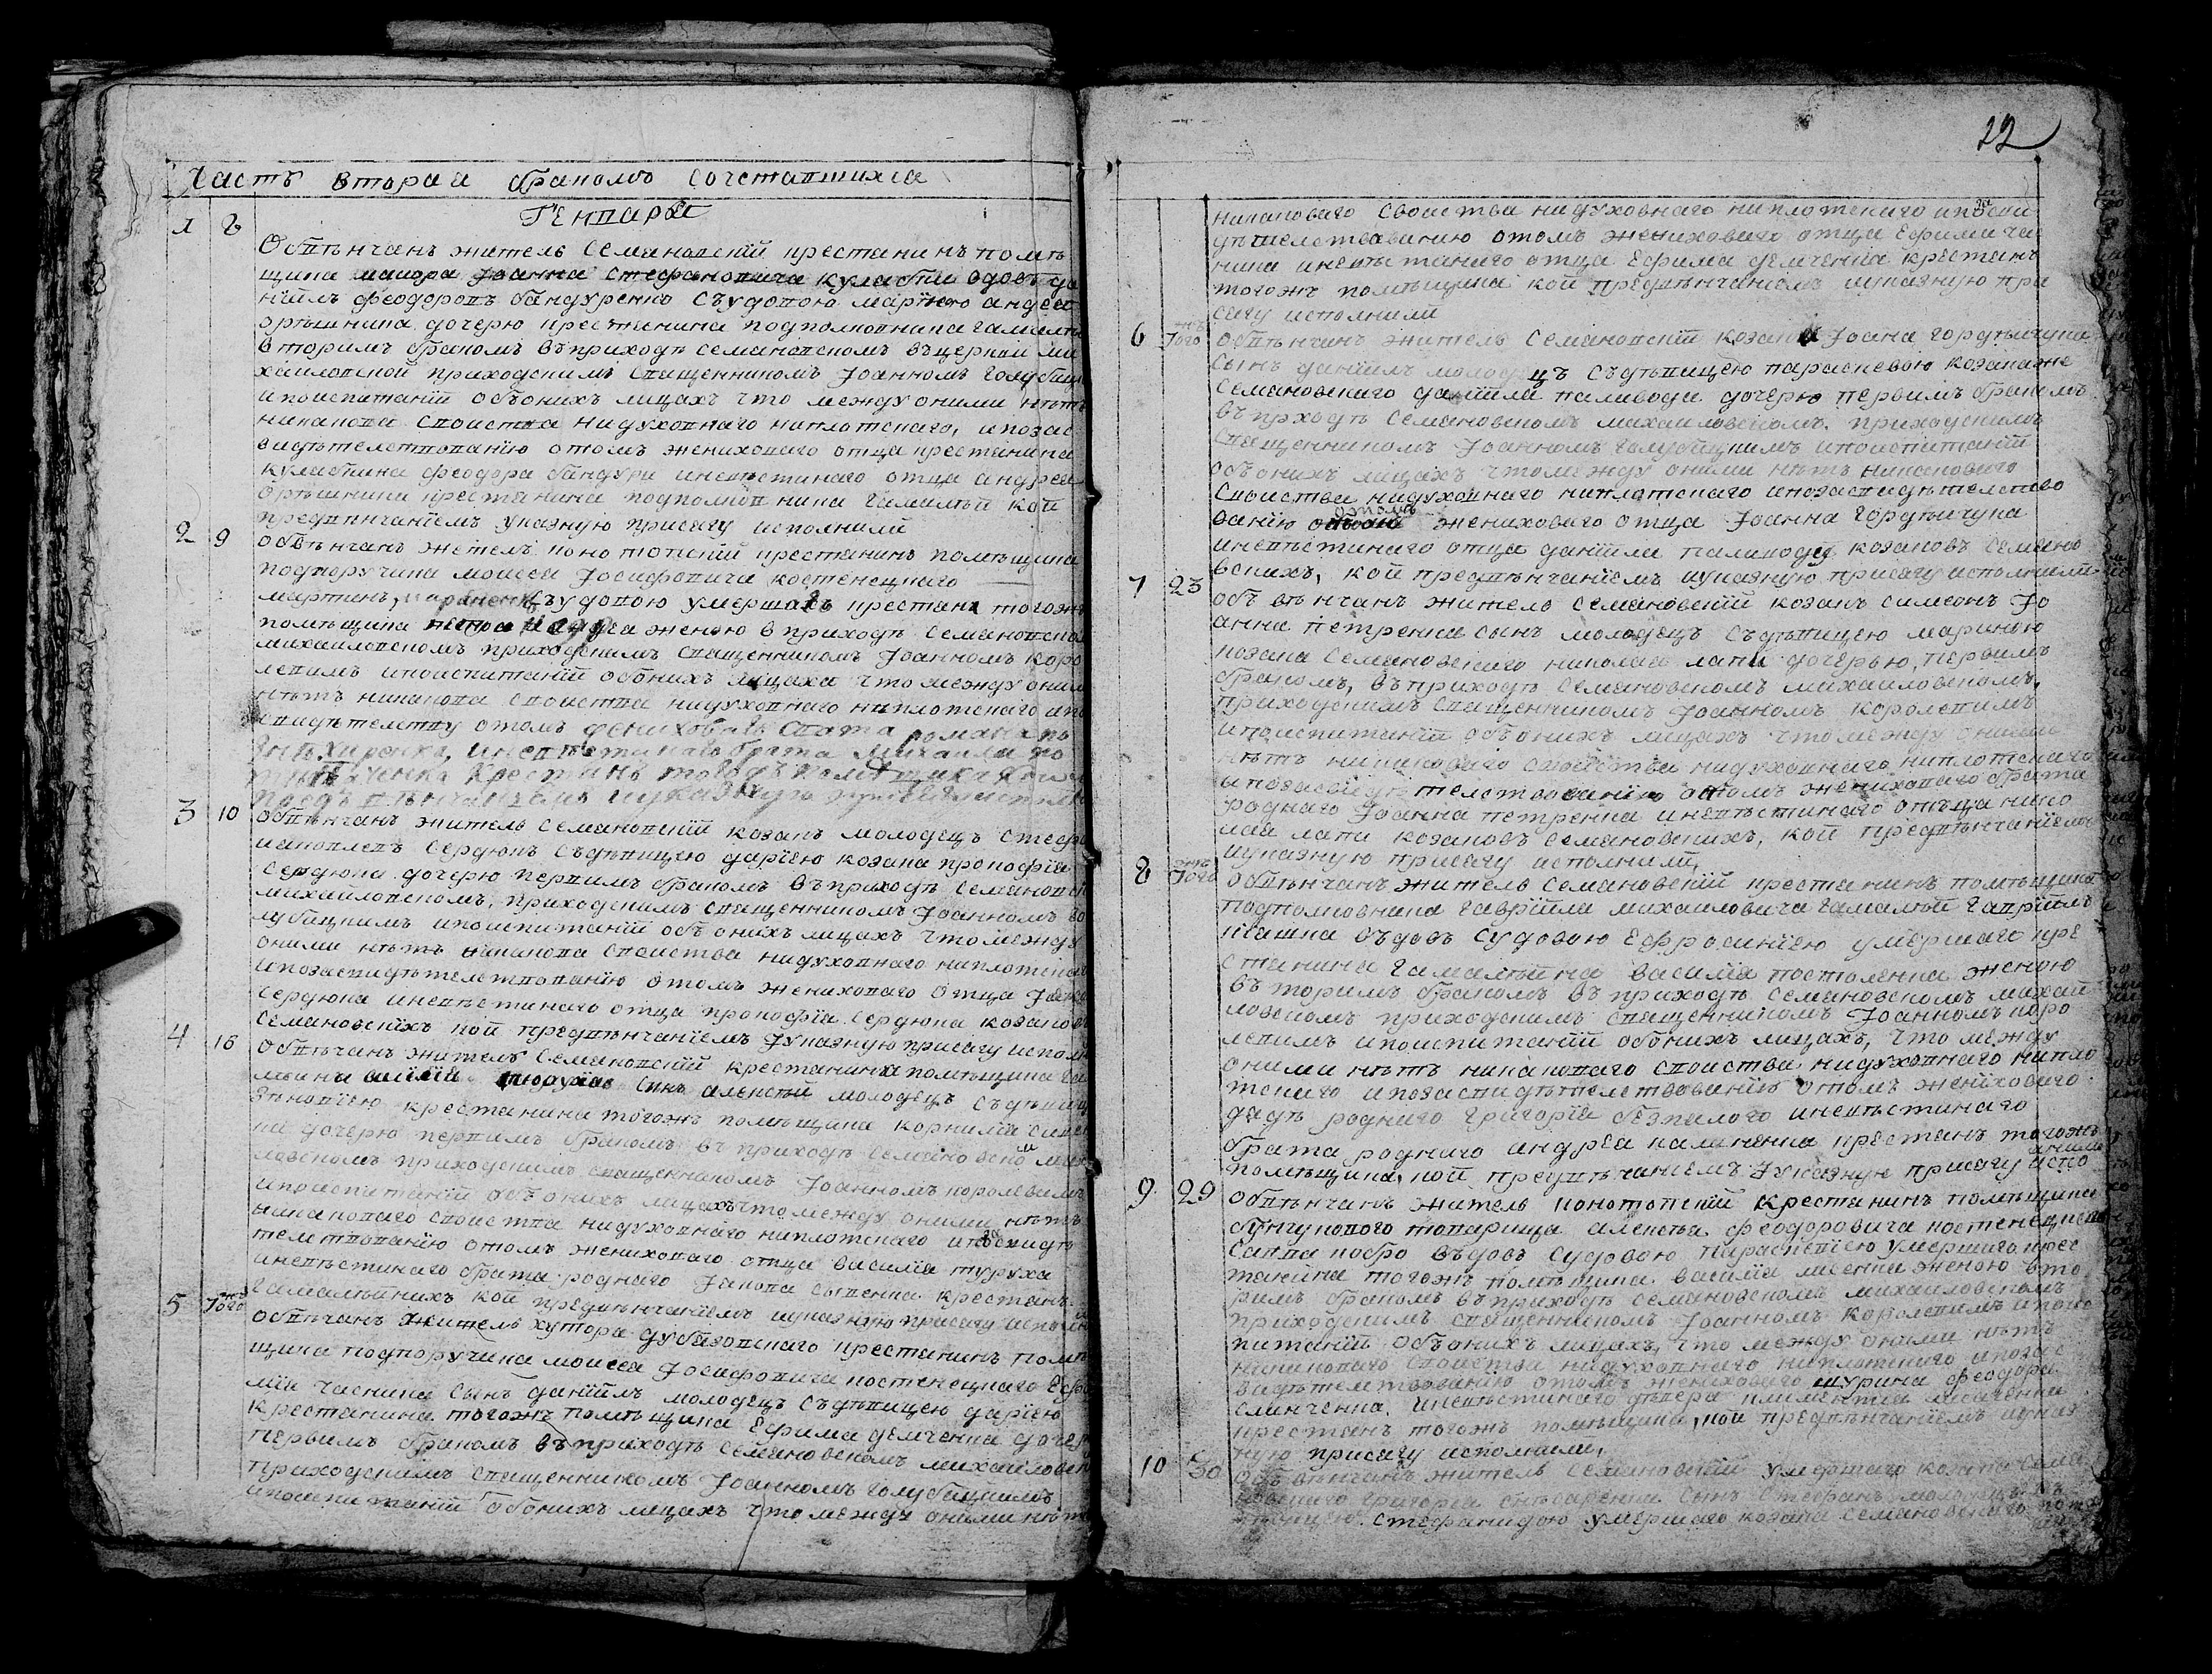 Часть вторая браколъ сочетавшихся
Генваря
1 8 Обвѣнчанъ житель Семановскій крестанинъ помѣ
щика маиора Іоанна Стефановича кулабки вдовъ да
ніилъ феодоровъ бандуренко съудовою
дочерю крестанина подполковника гамалѣи
вторимъ бракомъ въприходѣ Семановскомъ въцеркви ми
хаиловской приходскимъ священникомъ Іоанномъ голубиц
ипоиспитаніи обѣонихъ лицахъ что между оними нѣтъ
никакова своиства нидуховнаго ниплотскаго, ипозас
видѣтелствованію отомъ жениховаго отца крестанина
кулабкина феодора бандури иневѣстинаго отца андреа
крестанина подполковника гамалѣи кой
предвѣнчаніемъ указную присагу исполнили
2 9 Обвѣнчанъ жителъ конотопскій крестанинъ помѣщика
подпоручика моисеа Іосифовича костенецкаго
мартинъ съудовою умершаго крестана тогожъ
помѣщика женою вприходѣ Семановско
михаиловскомъ приходскимъ священникомъ Іоанномъ коро
левимъ ипоиспитаніи обонихъ лицаха что между оним
нѣтъ никакова своиства нидуховнаго ниплотскаго ипо
свидѣтелству отомъ романа
иневѣстинаго брата михаила
крестанъ тогожъ помѣщика кои
предъ вѣнчаніемъ иуказную
3 10 Обвѣнчанъ житель Семановскій козакъ молодецъ Стефа
иаковлевъ Сердюкъ съдѣвицею даріею козака прокофіа
Сердюка дочерю первимъ бракомъ въприходѣ Семановско
михаиловскомъ, приходскимъ священникомъ Іоанномъ го
лубицкимъ ипоиспитаніи обѣ онихъ лицахъ что между
оними нѣтъ никакова своиства нидуховнаго ниплотскаг
ипозасвидѣтелствованію отомъ жениховаго отца Іако
Сердюка иневѣстинаго отца прокофіа Сердюка козаков
Семановскихъ кой предвѣнчаніемъ Іуказную присагу исполн
4 16 Обвѣчанъ жителъ Семановскій крестанина помѣщика га
Синъ алексѣй молодецъ съдѣвиц
Зѣновіею крестанина тогожъ помѣщика корнилія
на дочерю первимъ бракомъ въ приходѣ Семановско мих
ловскомъ приходскимъ священникомъ Іоанномъ королевимъ
ипоиспитаніи обѣ онихъ лицахъ что между оними нѣтъ
никаковаго своиства нидуховнаго ниплотскаго ипозасвидѣ
телствованію отомъ жениховаго отца василіа туруха
иневѣстинаго брата роднаго Іакова крестанъ
гамалѣиныхъ кой предвѣнчаніемъ иуказную присагу исполн
5 Тогожъ обвѣчанъ житель хутора дубазовскаго крестанинъ помѣ
щика подпоручика моисеа Іосифовича костенецкаго Ефи
мія часника Сынъ даніилъ молодецъ съдѣвицею даріею
крестанина тогожъ помѣщика Ефима демченка дочер
первимъ бракомъ въприходѣ Семановскомъ михаиловск
приходскимъ священникомъ Іоанномъ голубицкимъ
ипоиспитаніи обонихъ лицахъ что между оними нѣтъ
22
никаковаго своиства нидуховнаго ниплотскаго ипозасви
дѣтелствованию отомъ жениховаго отца Ефима ча
ника иневѣстинаго отца Ефима демченка крестанъ
тогожъ помѣщика кой предвѣнчаніемъ иуказную при
сагу исполнили
6 Тогожъ обвѣнчанъ житель Семановскій козака Іоана гордѣичука
Сынъ даніилъ молодецъ съдѣвицею параскевою козака же
Семановскаго даніила паливоди дочерю первимъ бракомъ
въ приходѣ Семановскомъ михаиловскомъ, приходскимъ
священникомъ Іоанномъ голубицкимъ ипоиспитаніи
обѣонихъ лицахъ что между оними нѣтъ никаковаго
своиства нидуховнаго ниплотскаго ипозасвидѣтелство
ванію отомъ жениховаго отца Іоанна гордѣичука
иневѣстинаго отца даніила паливоди козаковъ Семано
вскихъ, кой предвѣнчаніемъ иуказную присагу исполнили
7 23 обѣвѣнчанъ житель Семановскій козакъ симеонъ Іо
анна петренка сынъ молодецъ съдѣвицею мариною
козака Семановскаго николаа лапи дочерью, первимъ
бракомъ, въприходѣ Семановскомъ михаиловскомъ,
приходскимъ священникомъ Іоанномъ королевимъ
ипоиспитаніи обѣонихъ лицахъ что между оними
нѣтъ никаковаго своиства нидуховнаго ниплотскаго
ипозасвидѣтелствованію отомъ жениховаго брата
роднаго Іоанна петренка иневѣстинаго отъца нико
лаа лапи козаковъ Семановскихъ, кой предвѣнчаніемъ
иуказную присагу исполнили,
8 Тогожъ обвѣнчанъ житель Семановскій крестанинъ помѣщика
подполковника гавріила михаиловича гамалѣи гавріилъ
въдовъ судовою Ефросиніею умершаго кре
станина гамалѣина василіа постоленка женою
въторимъ бракомъ въприходѣ Семановскомъ михаи
ловскомъ приходскимъ священникомъ Іоанномъ коро
левимъ ипоиспитаніи обонихъ лицахъ, что между
оними нѣтъ никаковаго своиства нидуховнаго нипло
тскаго ипозасвидѣтелствованію отомъ жениховаго
дадѣ роднаго григоріа безпалого иневѣстинаго
брата роднаго андреа калиненка крестанъ тогожъ
помѣщика, кой предвѣчаніемъ Іуказную присагу испо
лнили
9 29 Обвѣнчанъ житель конотопскій крестанинъ помѣщика
бунчукового товарища алексѣа феодоровича костенецкаго
Савва въдовъ судовою параскевіею умершаго крес
танина тогожъ помѣщика василіа женою вто
римъ бракомъ въприходѣ Семановскомъ михаиловскомъ
приходскимъ священникомъ Іоанномъ королевимъ ипоис
питаніи обѣонихъ лицахъ, что между оними нѣтъ
никаковаго своиства нидуховнаго ниплотскаго ипозас
видѣтелствованію отомъ жениховаго шурина феодора
иневѣстинаго
крестанъ тогожъ помѣщика, кой предвѣнчаніемъ иуказ
ную присагу исполнили,
10 30 Обѣвѣнчанъ житель Семановскій умершаго козака Сема
новскаго григореа сынъ Стефанъ молодецъ съ
дѣвицею Стефанидою умершаго козака Семановскаго